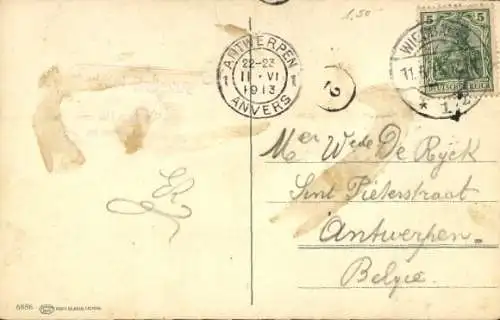 1.50
ANTWERPEN
22-23
11 VI
1913
ANVERS
2
5
5
DEUTSCHES REICH
11.
Mer Wede De Ryck
Sint Pieterstraat
Antwerpen
Belgie.
6886